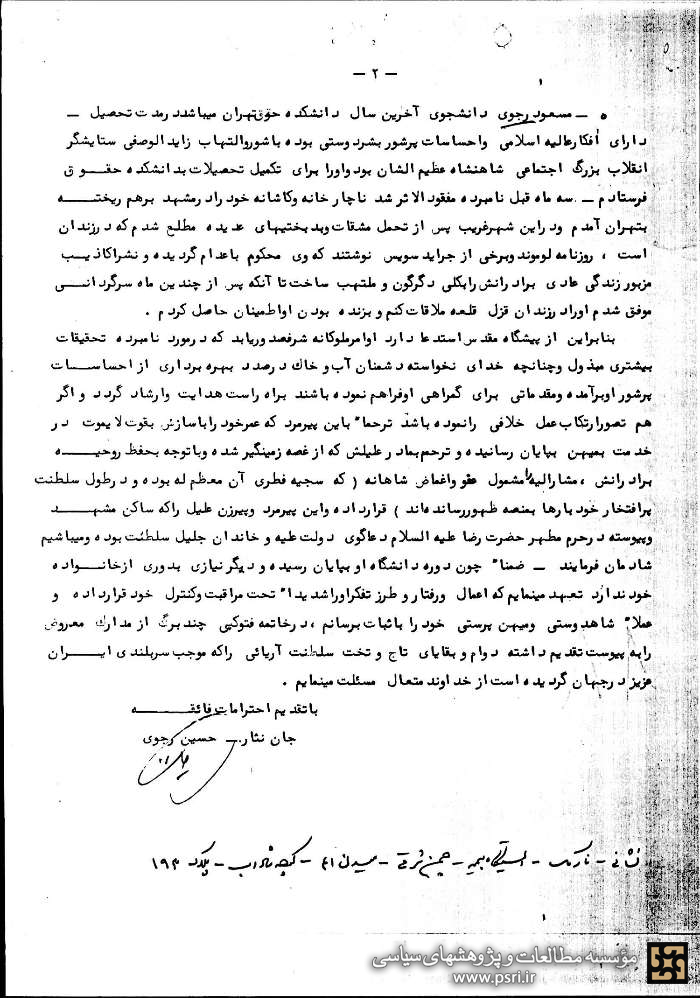 — ۲ —
ه — مسعود رجوی دانشجوی آخرین سال دانشکده حقوق تهران میباشد درمدت تحصیل —
دارای افکار عالیه اسلامی واحساسات پرشور بشردوستی بوده باشور والتهاب زاید الوصفی ستایشگر
انقلاب بزرگ اجتماعی شاهنشاه عظیم الشان بود واورا برای تکمیل تحصیلات بدانشکده حقوق
فرستادم — سه ماه قبل نامبرده مفقود الاثر شد ناچار خانه وکاشانه خود رادرمشهد برهم ریخته
بتهران آمدم ودراین شهر غریب پس از تحمل مشقات وبدبختیهای عدیده مطلع شدم که درزندان
است ، روزنامه لوموند وبرخی از جراید سویس نوشتند که وی محکوم باعدام گردیده و نشر اکاذیب
مزبور زندگی عادی برادرانش رابکلی دگرگون و ملتهب ساخت تا آنکه پس از چندین ماه سرگردانی
موفق شدم اورادرزندان قزل قلعه ملاقات کنم و بزنده بودن او اطمینان حاصل کردم .
بنابراین از پیشگاه مقدس استدعا دارد اوامر ملوکانه شرفصدوریابد که درمورد نامبرده تحقیقات
بیشتری مبذول وچنانچه خدای نخواسته دشمنان آب وخاك درصدد بهره برداری از احساسات
پرشور اوبرآمده ومقدماتی برای گمراهی اوفراهم نموده باشند براه راست هدایت وارشاد گردد و اگر
هم تصور ارتکاب عمل خلافی رانموده باشد ترحما" باین پیرمرد که عمرخود راباسازش بقوت لایموت در
خدمت بمیهن بپایان رسانیده و ترحم بمادر علیلش که از غصه زمینگیر شده وباتوجه بحفظ روحیه
برادرانش ، مشارالیه را مشمول عفو واغماض شاهانه ( که سجیه فطری آن معظم له بوده و درطول سلطنت
پرافتخار خود بارها بمنصه ظهوررسانده اند ) قرارداده واین پیرمرد وپیرزن علیل راکه ساکن مشهد
وپیوسته درحرم مطهر حضرت رضا علیه السلام دعاگوی دولت علیه و خاندان جلیل سلطنت بوده ومیباشیم
شادمان فرمایند — ضمنا" چون دوره دانشگاه او بپایان رسیده و دیگر نیازی بدوری ازخانواده
خود ندارد تعهد مینمایم که اعمال ورفتار و طرز تفکر اوراشدیدا" تحت مراقبت وکنترل خود قرارداده و
عملا" شاهدوستی ومیهن پرستی خود را باثبات برسانم ، درخاتمه فتوکپی چند برگ از مدارك معروض
رابه پیوست تقدیم داشته دوام وبقایای تاج و تخت سلطنت آریائی راکه موجب سربلندی ایران
عزیز درجهان گردیده است از خداوند متعال مسئلت مینمایم .
باتقدیم احترامات فائقه
جان نثار — حسین رجوی
نشانی – نارمک – ایستگاه بیمه – چمن شرقی – میدان – کوچه – پلاک ۱۹۳
مؤسسه مطالعات و پژوهشهای سیاسی
www.psri.ir